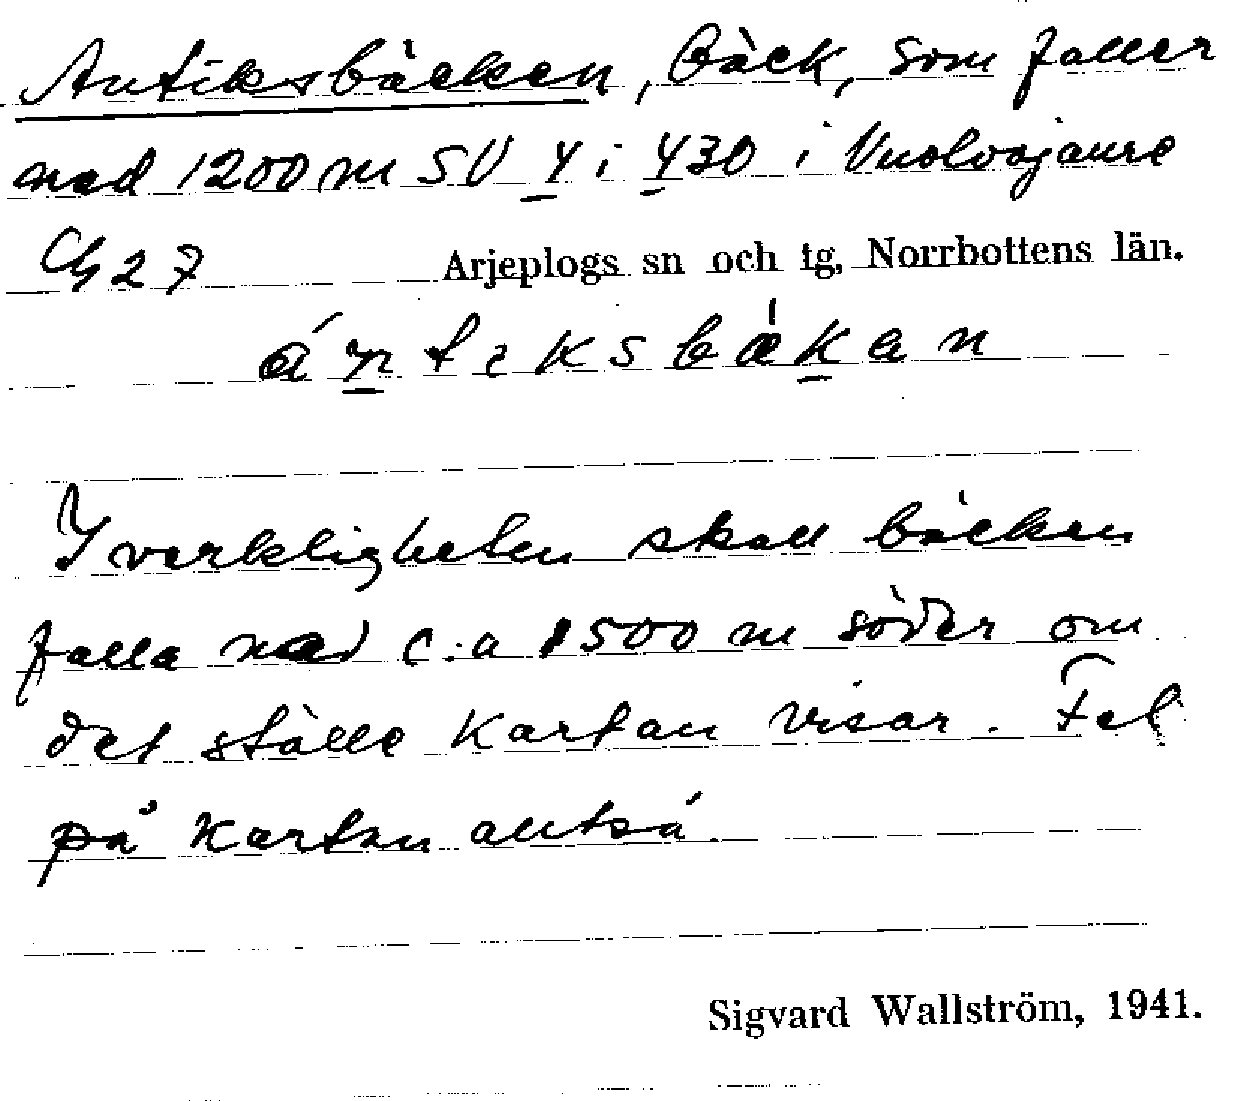 Antiksbäcken, Bäck, som faller
ned 1200 m SV 4 i 430 i Vuolvojaure
Ch 27 Arjeplogs sn och tg, Norrbottens län.
ántiksbækan
I verkligheten skall bäcken
falla ned c:a 1500 m söder om
det ställe kartan visar. Fel
på kartan alltså.
Sigvard Wallström, 1941.